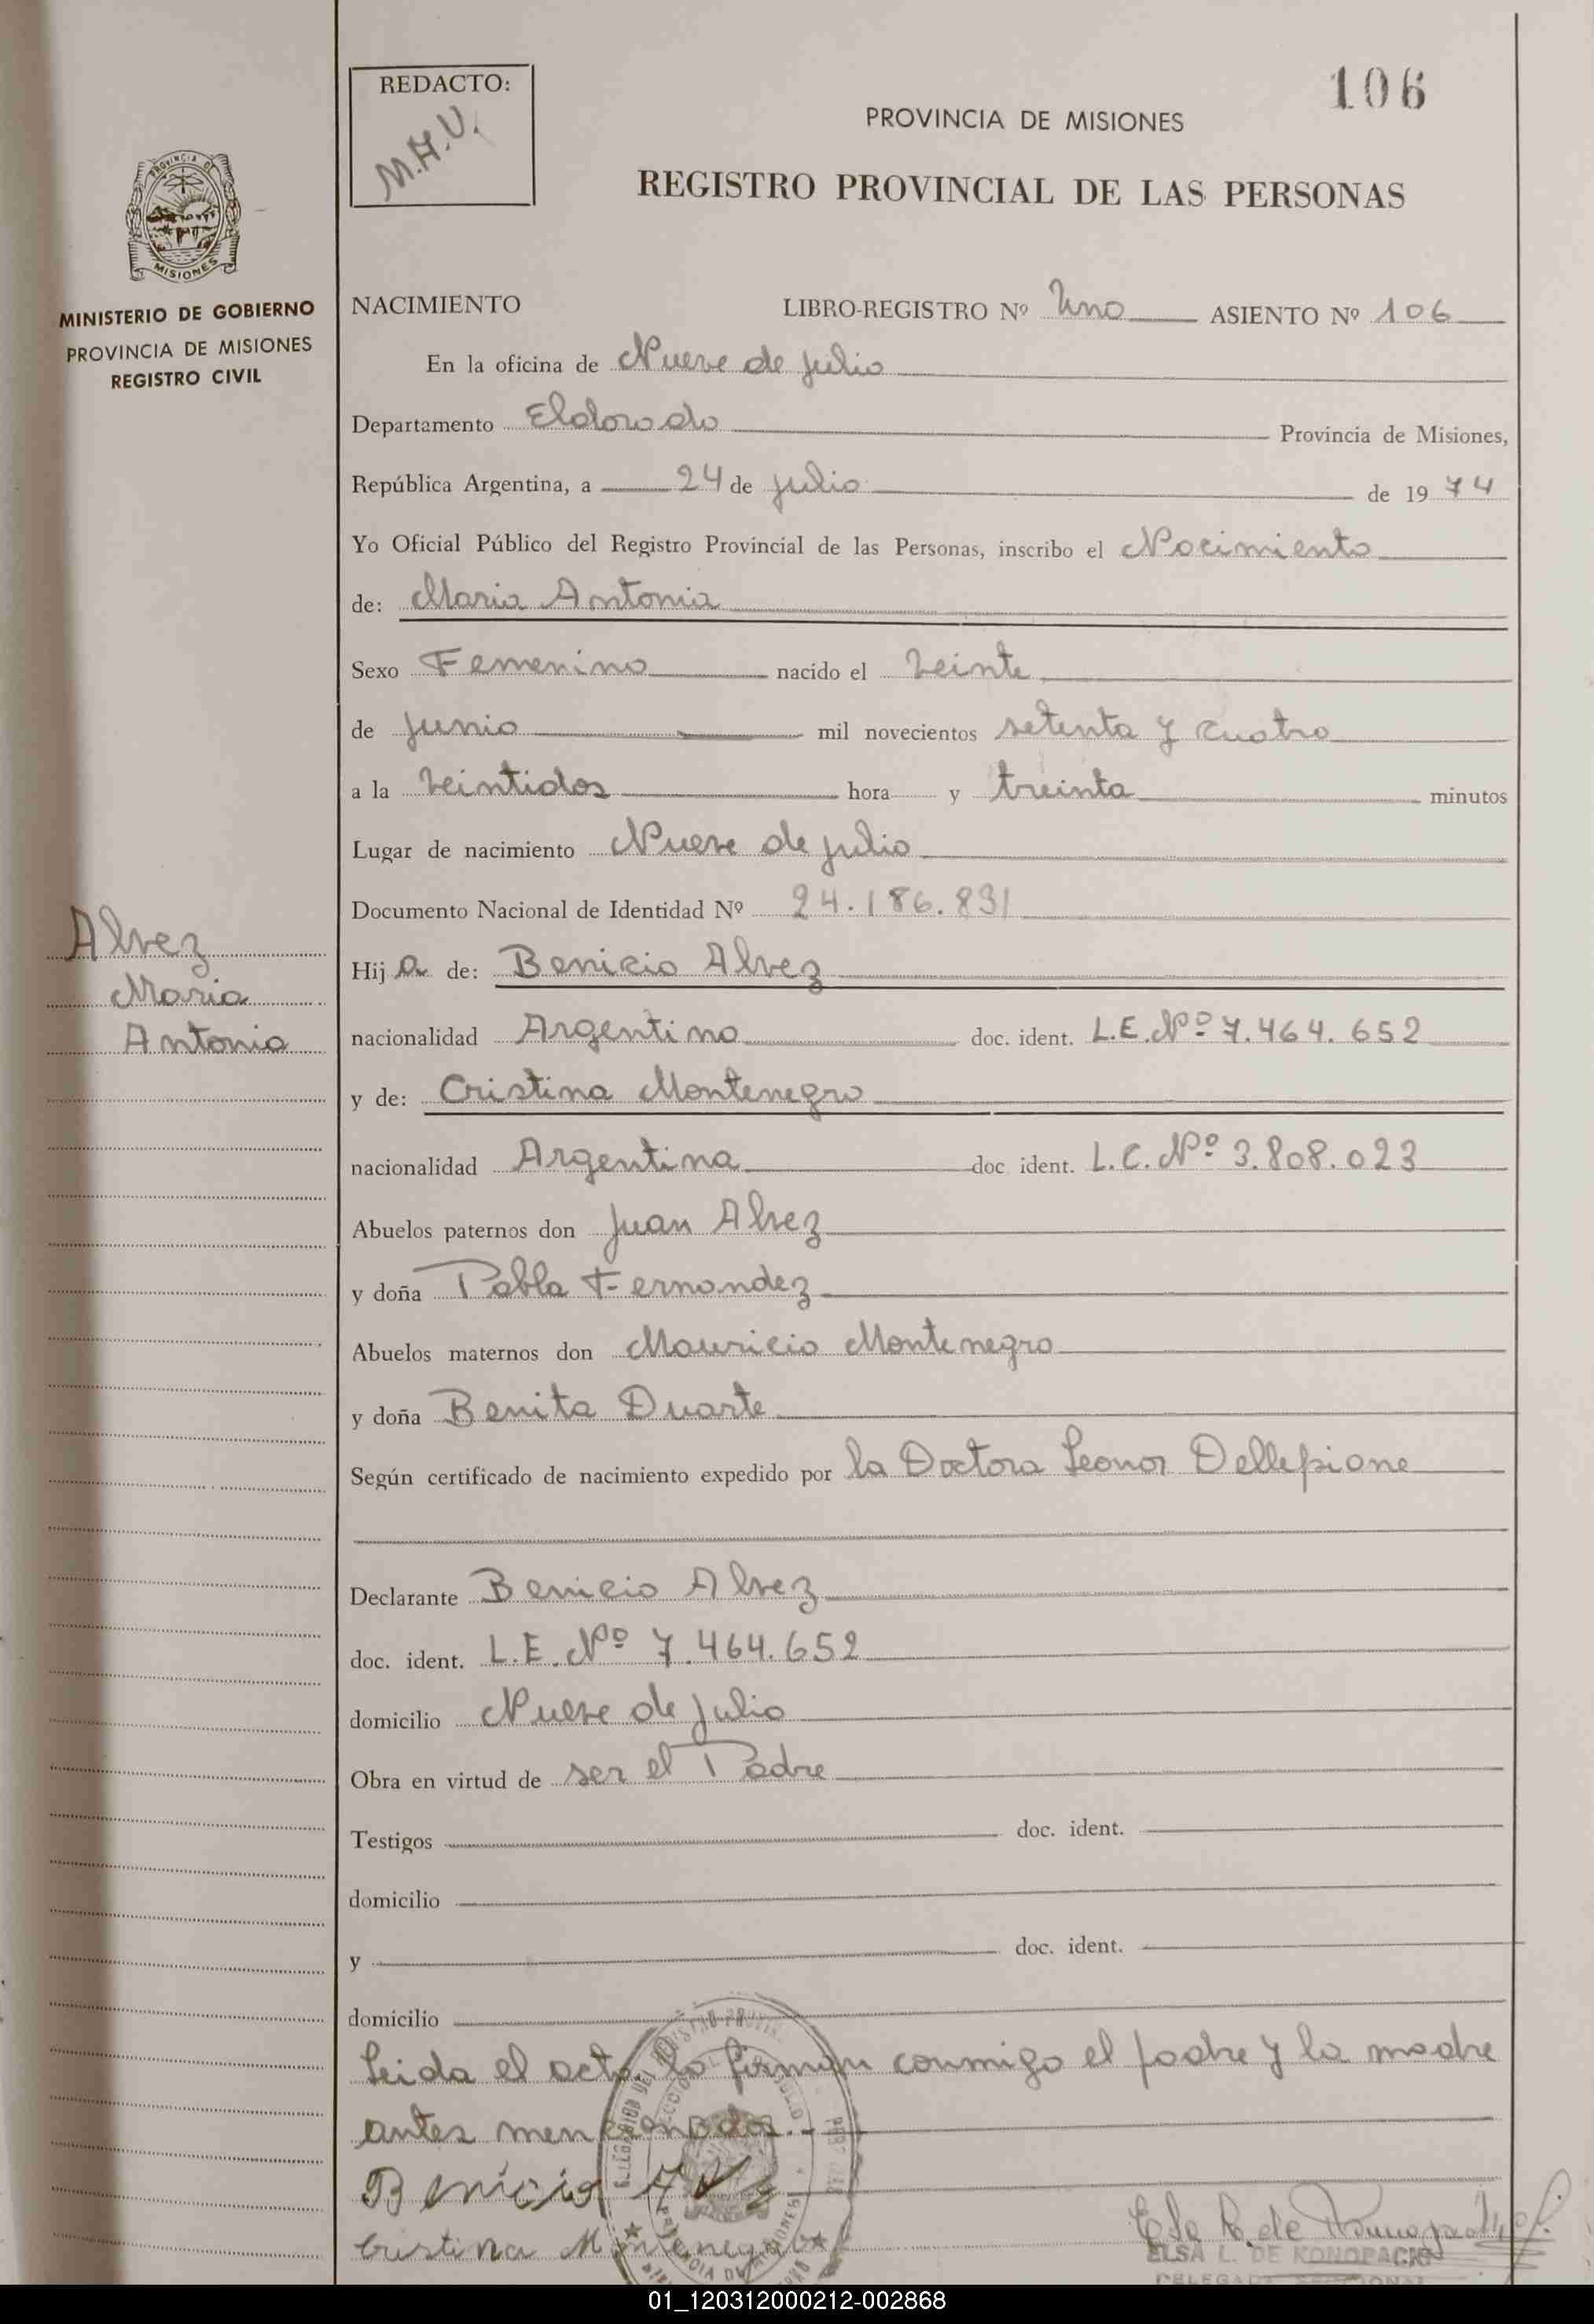 REDACTO:
M.A.V.
106
PROVINCIA DE MISIONES
REGISTRO PROVINCIAL DE LAS PERSONAS
MISIONES
MINISTERIO DE GOBIERNO
PROVINCIA DE MISIONES
REGISTRO CIVIL
NACIMIENTO LIBRO-REGISTRO Nº Uno ASIENTO Nº 106
En la oficina de Nueve de julio
Departamento Eldorado Provincia de Misiones,
República Argentina, a 24 de julio de 1974
Yo Oficial Público del Registro Provincial de las Personas, inscribo el Nacimiento
de: Maria Antonia
Sexo Femenino nacido el veinte
de junio mil novecientos setenta y cuatro
a la veintidos hora y treinta minutos
Lugar de nacimiento Nueve de julio
Documento Nacional de Identidad Nº 24.186.831
Alvez
Maria
Antonia
Hija de: Benicio Alvez
nacionalidad Argentino doc. ident. L.E. Nº 7.464.652
y de: Cristina Montenegro
nacionalidad Argentina doc ident. L.C. Nº 3.808.023
Abuelos paternos don Juan Alvez
y doña Pabla Fernandez
Abuelos maternos don Mauricio Montenegro
y doña Benita Duarte
Según certificado de nacimiento expedido por la Doctora Leonor Dellepiane
Declarante Benicio Alvez
doc. ident. L.E. Nº 7.464.652
domicilio Nueve de julio
Obra en virtud de ser el Padre
Testigos doc. ident.
domicilio
y doc. ident.
domicilio
Leida el acta, la firman conmigo el padre y la madre
antes mencionados.-
Benicio
Cristina Montenegro
ELSA L. DE KONOPACKI
01_120312000212-002868